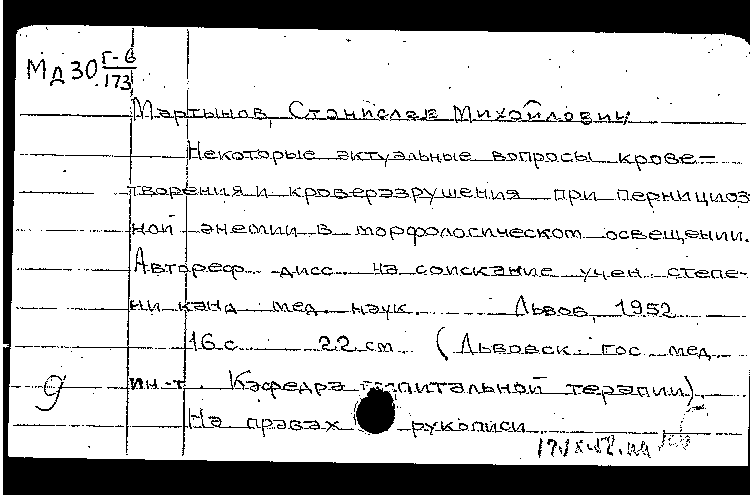 Мд 30 Г-6
173
Мартынов, Станислав Михайлович
Некоторые актуальные вопросы крове=
творения и кроверазрушения при пернициоз
ной анемии в морфологическом освещении.
Автореф. дисс. на соискание учен. степе-
ни канд. мед. наук. Львов, 1952
16 с. 22 см. (Львовск. гос. мед.
ин-т. Кафедра госпитальной терапии).
На правах рукописи